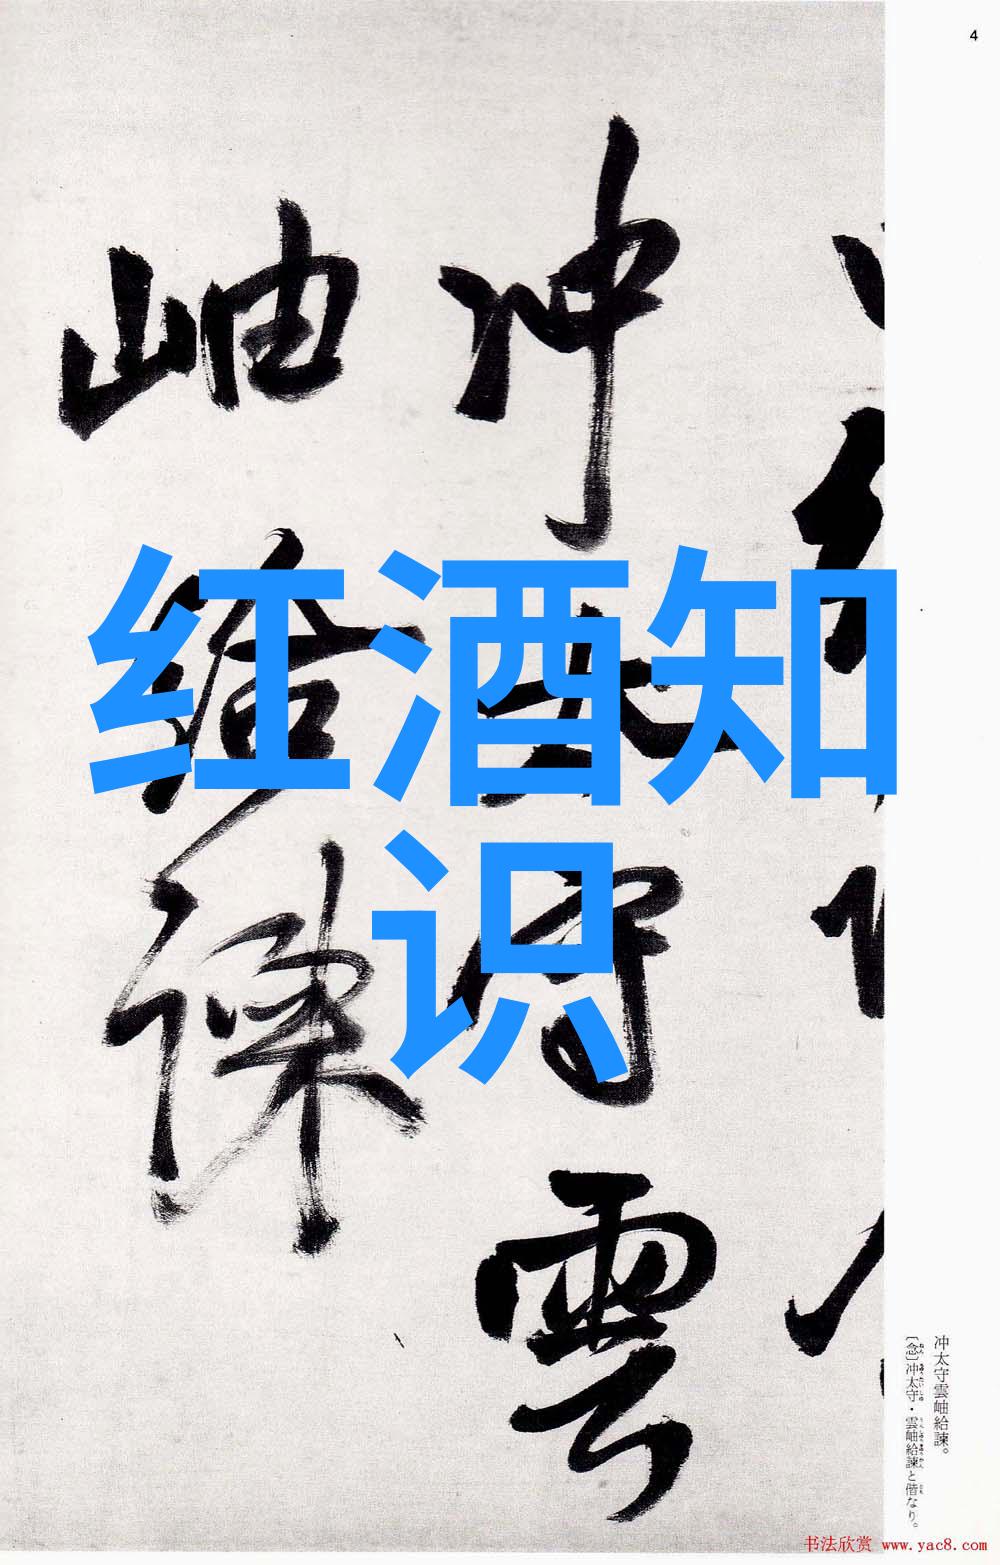 4
冲太守雲
岫給諫
红酒知
识
冲太守雲岫給諫。
〔念〕冲太守・雲岫給諫と偕なり。
书法欣赏 www.yac8.com